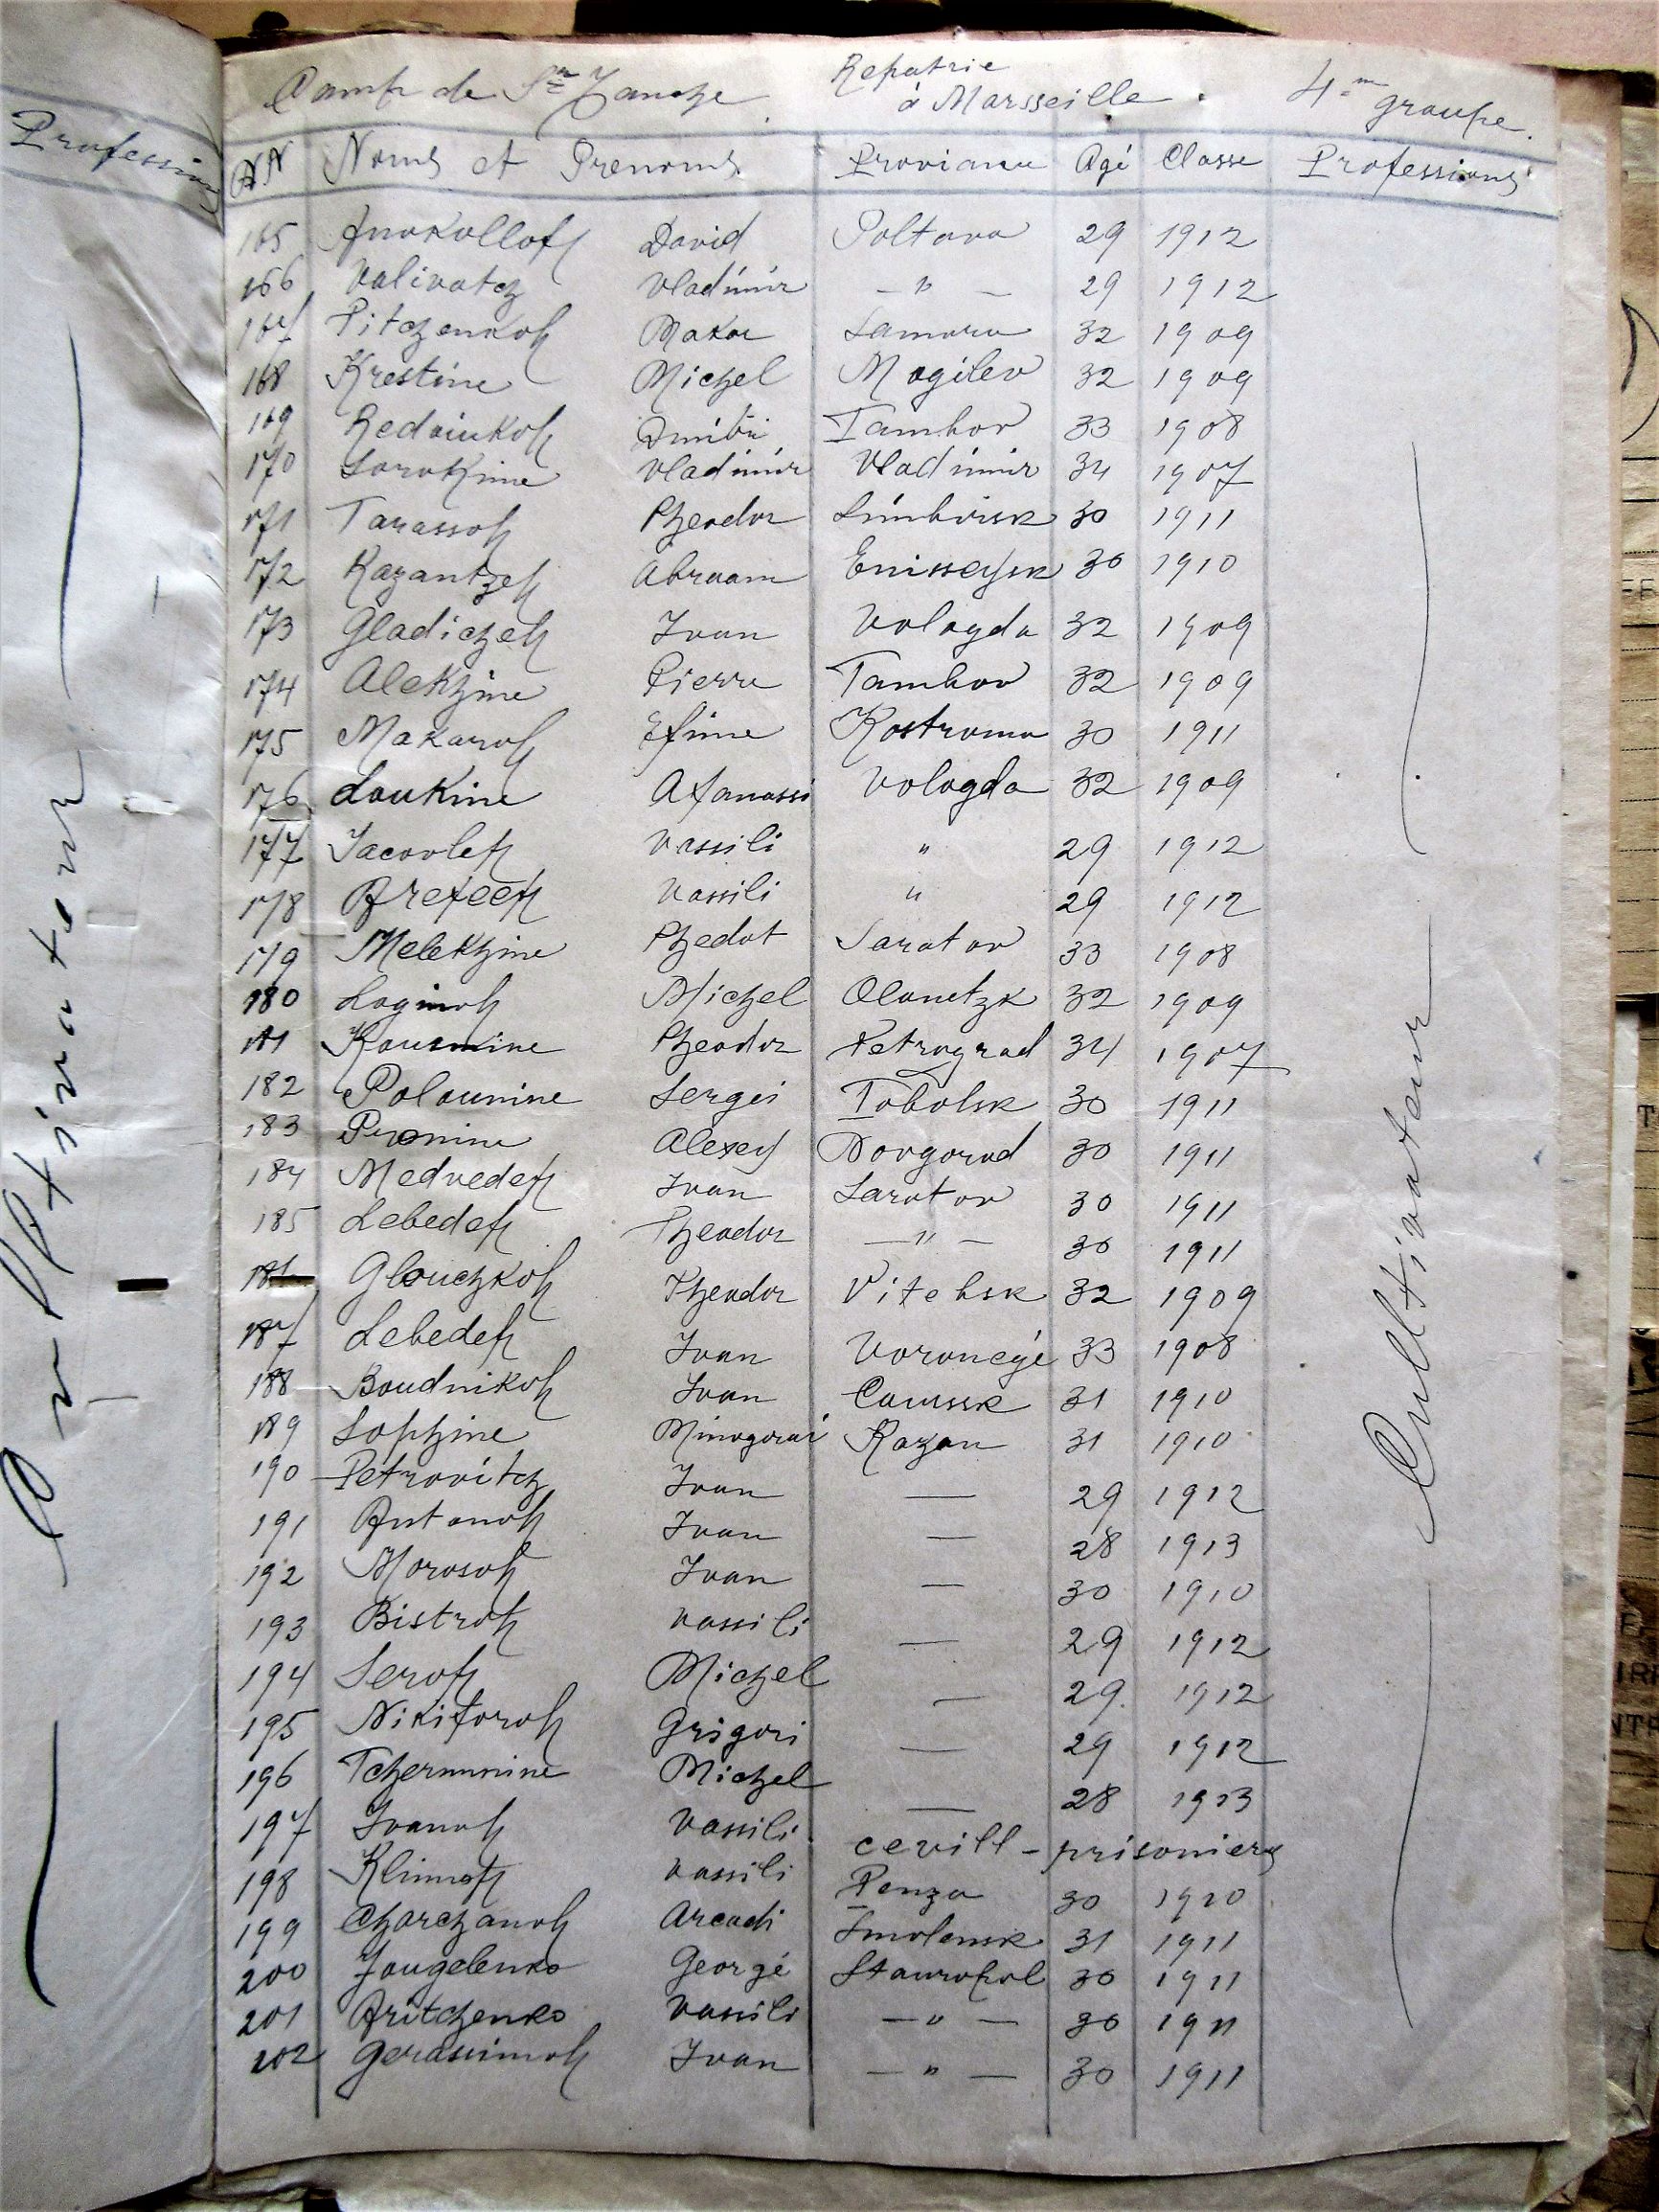 Professions
Cultivateur
Camp de Repatrie à Marsseille. 4-m groupe.
NN Noms et Prenoms Provianse Agé Classe Professions
165 David Poltava 29 1912
166 Valivatch Vladimir — " — 29 1912
167 Pitchenkoff Makar Samara 32 1909
168 Krestine Michel Mogilev 32 1909
169 Dmitri Tambov 33 1908
170 Sorokine Vladimir Vladimir 34 1907
171 Tarassoff Pheodor Simbirsk 30 1911
172 Kazantzeff Abraam Enisseysk 30 1910
173 Gladicheff Ivan Vologda 32 1909
174 Alekhine Pierre Tambov 32 1909
175 Makaroff Efime Kostroma 30 1911
176 Loukine Afanassi Vologda 32 1909
177 Jacovleff Vassili " 29 1912
178 Arefeeff Vassili " 29 1912
179 Melekhine Phedot Saratov 33 1908
180 Loginoff Michel Olonetzk 32 1909
181 Kousmine Pheodor Petrograd 34 1907
182 Polounine Sergei Tobolsk 30 1911
183 Pronine Alexey Novgorod 30 1911
184 Medvedeff Ivan Saratov 30 1911
185 Lebedeff Theodor — " — 30 1911
186 Glouchkoff Theodor Vitebsk 32 1909
187 Lebedeff Ivan Voronegé 33 1908
188 Boudnikoff Ivan Courssk 31 1910
189 Sophine Kazan 31 1910
190 Petrovitch Ivan — 29 1912
191 Antonoff Ivan — 28 1913
192 Morosoff Ivan — 30 1910
193 Bistroff Vassili — 29 1912
194 Seroff Michel — 29. 1912
195 Nikiforoff Grigori — 29 1912
196 Michel — 28 1913
197 Ivanoff Vassili cevill - prisoniers
198 Klimoff Vassili Penza 30 1910
199 Arcadi Smolensk 31 1911
200 Jougelenko Georgé Stavropol 30 1911
201 Aritchenko Vassili — " — 30 1911
202 Gerassimoff Ivan — " — 30 1911
Cultivateur